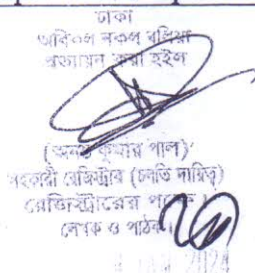 ঢাকা
অবিকল নকল বলিয়া
প্রত্যায়ন করা হইল
(অনন্ত কুমার পাল)
সহকারী রেজিস্ট্রার (চলতি দায়িত্ব)
রেজিস্ট্রারের পক্ষে
লেখক ও পাঠক।
2024